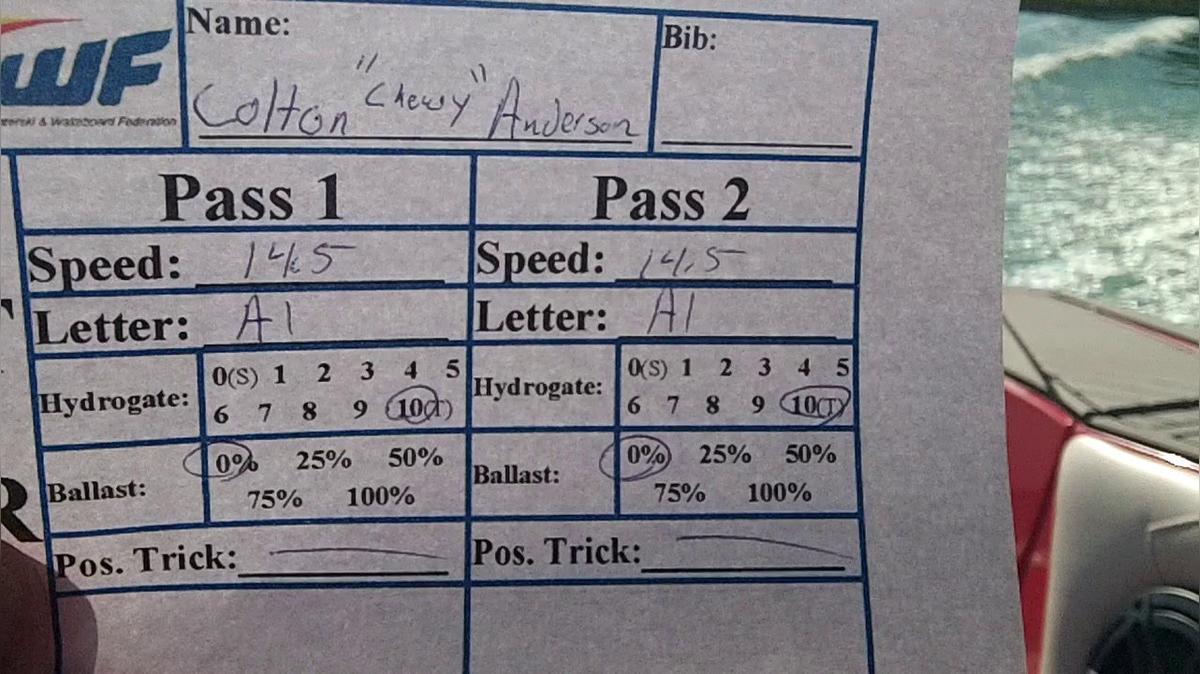 WF
Waterski & Wakeboard Federation
Name: Colton "Chewy" Anderson
Bib:
Pass 1 Pass 2
Speed: 14.5 Speed: 14.5
Letter: A1 Letter: A1
Hydrogate: 0(S) 1 2 3 4 5 Hydrogate: 0(S) 1 2 3 4 5
6 7 8 9 10(T) 6 7 8 9 10(T)
Ballast: 0% 25% 50% Ballast: 0% 25% 50%
75% 100% 75% 100%
Pos. Trick: Pos. Trick:
R